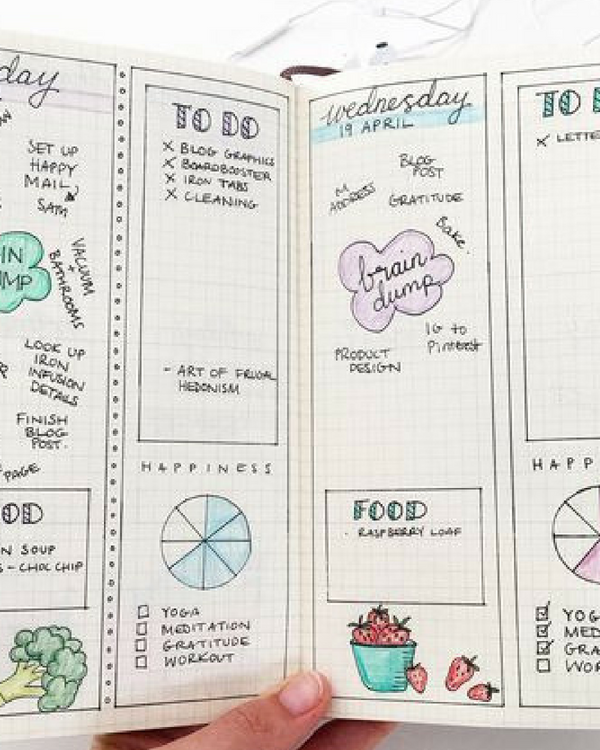 day
SET UP
HAPPY
MAIL
SAM
VACUUM
+
BATHROOMS
LOOK UP
IRON
INFUSION
DETAILS
FINISH
BLOG
POST.
PAGE
OD
N SOUP
S - CHOC CHIP
TO DO
X BLOG GRAPHICS
X BOARDBOOSTER
X IRON TABS
X CLEANING
- ART OF FRUGAL
HEDONISM
HAPPINESS
YOGA
MEDITATION
GRATITUDE
WORKOUT
wednesday
19 APRIL
BLOG
POST
M
ADDRESS
GRATITUDE
Bake.
brain
dump
IG to
Pinterest
PRODUCT
DESIGN
FOOD
. RASPBERRY LOAF
TO
X LETTE
HAPP
YOG
MED
GRA
WOR